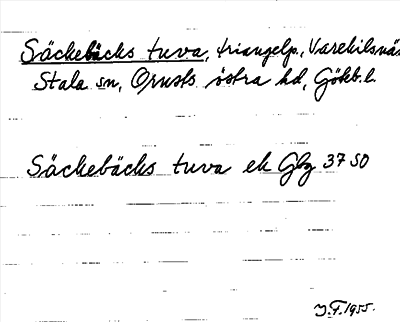 Säckebäcks tuva, triangelp., Varekilsnäs
Stala sn, Orusts östra hd, Göteb. l.
Säckebäcks tuva ek Gbg 37 SO
J.F. 1955.